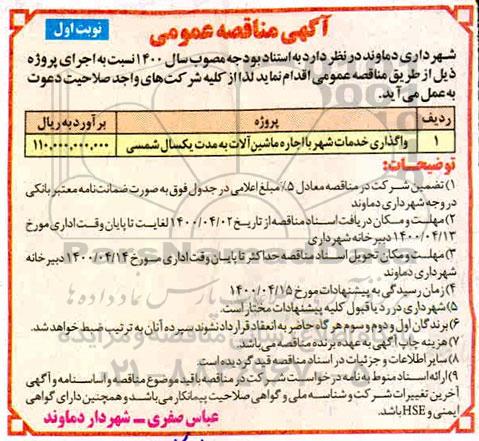 آگهی مناقصه عمومی
نوبت اول
شهرداری دماوند در نظر دارد به استناد بودجه مصوب سال ۱۴۰۰ نسبت به اجرای پروژه
ذیل از طریق مناقصه عمومی اقدام نماید لذا از کلیه شرکت‌های واجد صلاحیت دعوت
به عمل می آید.
ردیف پروژه برآورد به ریال
۱ واگذاری خدمات شهر با اجاره ماشین آلات به مدت یکسال شمسی ۱۱۰,۰۰۰,۰۰۰,۰۰۰
توضیحات:
۱) تضمین شرکت در مناقصه معادل ۵٪ مبلغ اعلامی در جدول فوق به صورت ضمانت‌نامه معتبر بانکی
در وجه شهرداری دماوند
۲) مهلت و مکان دریافت اسناد مناقصه از تاریخ ۱۴۰۰/۰۴/۰۲ لغایت تا پایان وقت اداری مورخ
۱۴۰۰/۰۴/۱۳ دبیرخانه شهرداری
۳) مهلت و مکان تحویل اسناد مناقصه حداکثر تا پایان وقت اداری مورخ ۱۴۰۰/۰۴/۱۴ دبیرخانه
شهرداری دماوند
۴) زمان رسیدگی به پیشنهادات مورخ ۱۴۰۰/۰۴/۱۵
۵) شهرداری در رد یا قبول کلیه پیشنهادات مختار است.
۶) برندگان اول و دوم و سوم هرگاه حاضر به انعقاد قرارداد نشوند سپرده آنان به ترتیب ضبط خواهد شد.
۷) هزینه چاپ آگهی به عهده برنده مناقصه می‌باشد.
۸) سایر اطلاعات و جزئیات در اسناد مناقصه قید گردیده است.
۹) ارائه اسناد منوط به نامه درخواست شرکت در مناقصه با قید موضوع مناقصه و اساسنامه و آگهی
آخرین تغییرات شرکت و شناسه ملی و گواهی صلاحیت پیمانکار می‌باشد و همچنین دارای گواهی
ایمنی و HSE باشد.
عباس صفری ــ شهردار دماوند